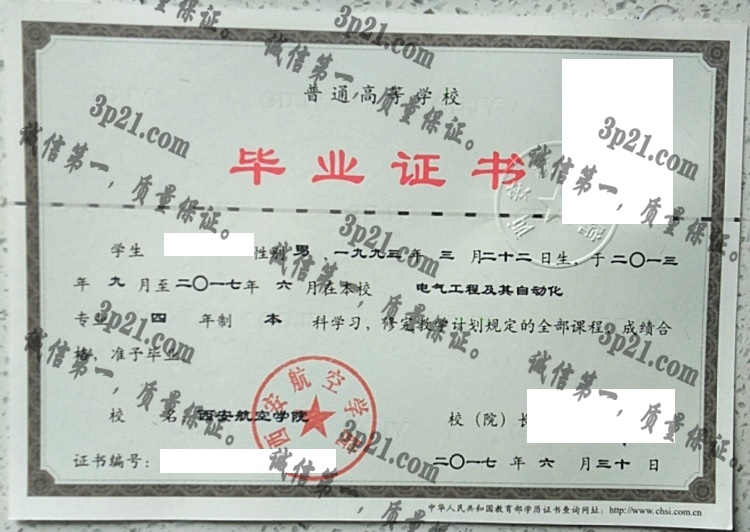 普通高等学校
毕业证书
学生 性别 男 , 一九九三 年 三 月 二十二 日生, 于 二〇一三
年 九 月至 二〇一七 年 六 月在本校 电气工程及其自动化
专业 四 年制 本 科学习, 修完教学计划规定的全部课程, 成绩合
格, 准予毕业
校 名: 西安航空学院
校（院）长
证书编号:
二〇一七 年 六 月 三十 日
中华人民共和国教育部学历证书查询网址: http://www.chsi.com.cn
西安航空学院
3p21.com
诚信第一，质量保证。
3p21.com
诚信第一，质量保证。
3p21.com
诚信第一，质量保证。
3p21.com
诚信第一，质量保证。
3p21.com
诚信第一，质量保证。
3p21.com
诚信第一，质量保证。
3p21.com
诚信第一，质量保证。
3p21.com
诚信第一，质量保证。